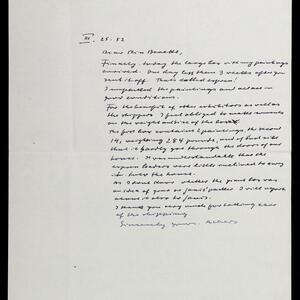 III. 25. 52
Dear Miss Benedict,
Finally, today the large box with my paintings
arrived. One day less than 3 weeks after you
sent it off. That's called express!
I inspected the paintings and all are in
good conditions.
For the benefit of other exhibitors as well as
the shippers I feel obliged to make remarks
on the weight and size of the box.
The first box contained 2 paintings, the second
14, weighing 284 pounds, and such a size
that it hardly got through the doors of our
house. It was understandable that the
express leaders were little inclined to carry
it into the house.
As I don't know whether the giant box was
an idea of yours or Janis' packer I will report
about it also to Janis.
I thank you very much for taking care
of the shipping.
Sincerely yours, Albers